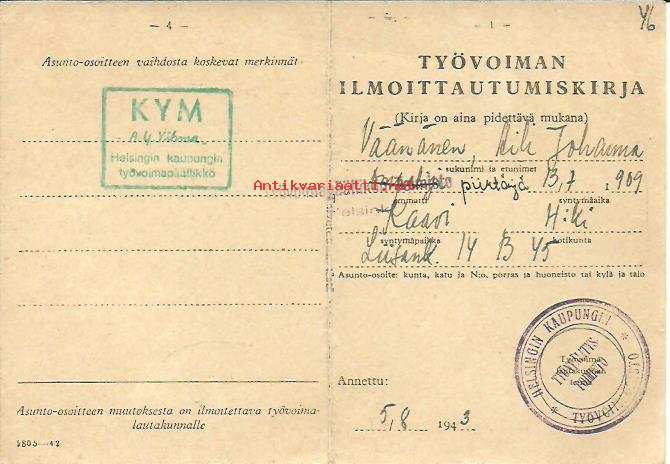 — 4 —
Asunto-osoitteen vaihdosta koskevat merkinnät
KYM
Helsingin kaupungin
työvoimapäällikkö
Asunto-osoitteen muutoksesta on ilmoitettava työvoima-
lautakunnalle
5805—42
— 1 —
46
TYÖVOIMAN
ILMOITTAUTUMISKIRJA
(Kirja on aina pidettävä mukana)
Väänänen, Aili Johanna
sukunimi ja etunimet
piirtäjä 13.7 1909
ammatti syntymäaika
Kaavi H:ki
syntymäpaikka kotikunta
Liisank. 14 B 45
Asunto-osoite: kunta, katu ja N:o, porras ja huoneisto tai kylä ja talo
Antikvariaatti.net
Helsinki
HELSINGIN KAUPUNGIN
Työvoima-
lautakunnan
Annettu:
5/8 1943